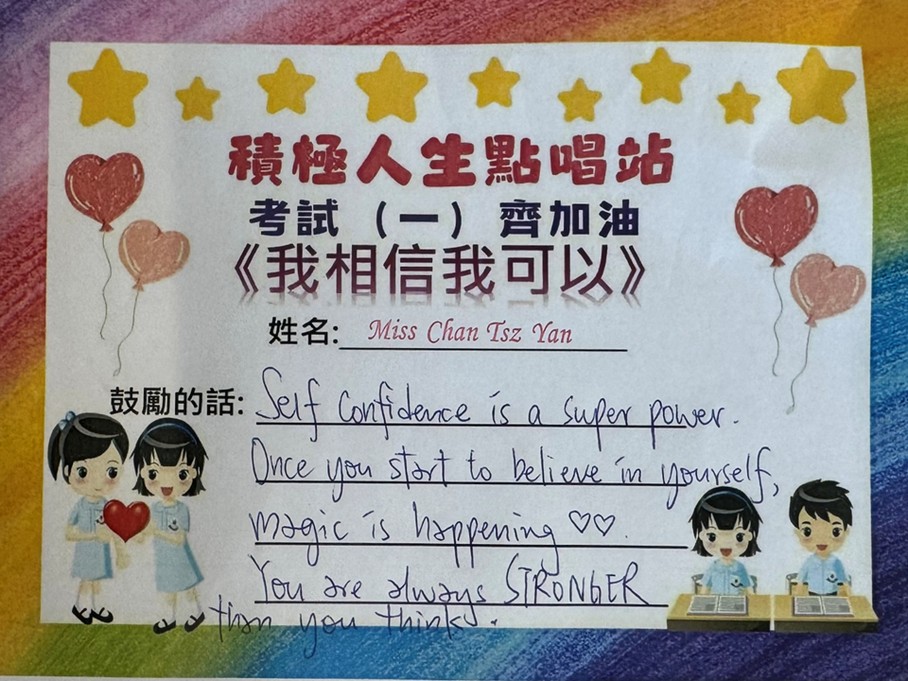 積極人生點唱站
考試（一）齊加油
《我相信我可以》
姓名: Miss Chan Tsz Yan
鼓勵的話: Self confidence is a super power.
Once you start to believe in yourself,
magic is happening ♡♡.
You are always STRONGER
than you think.